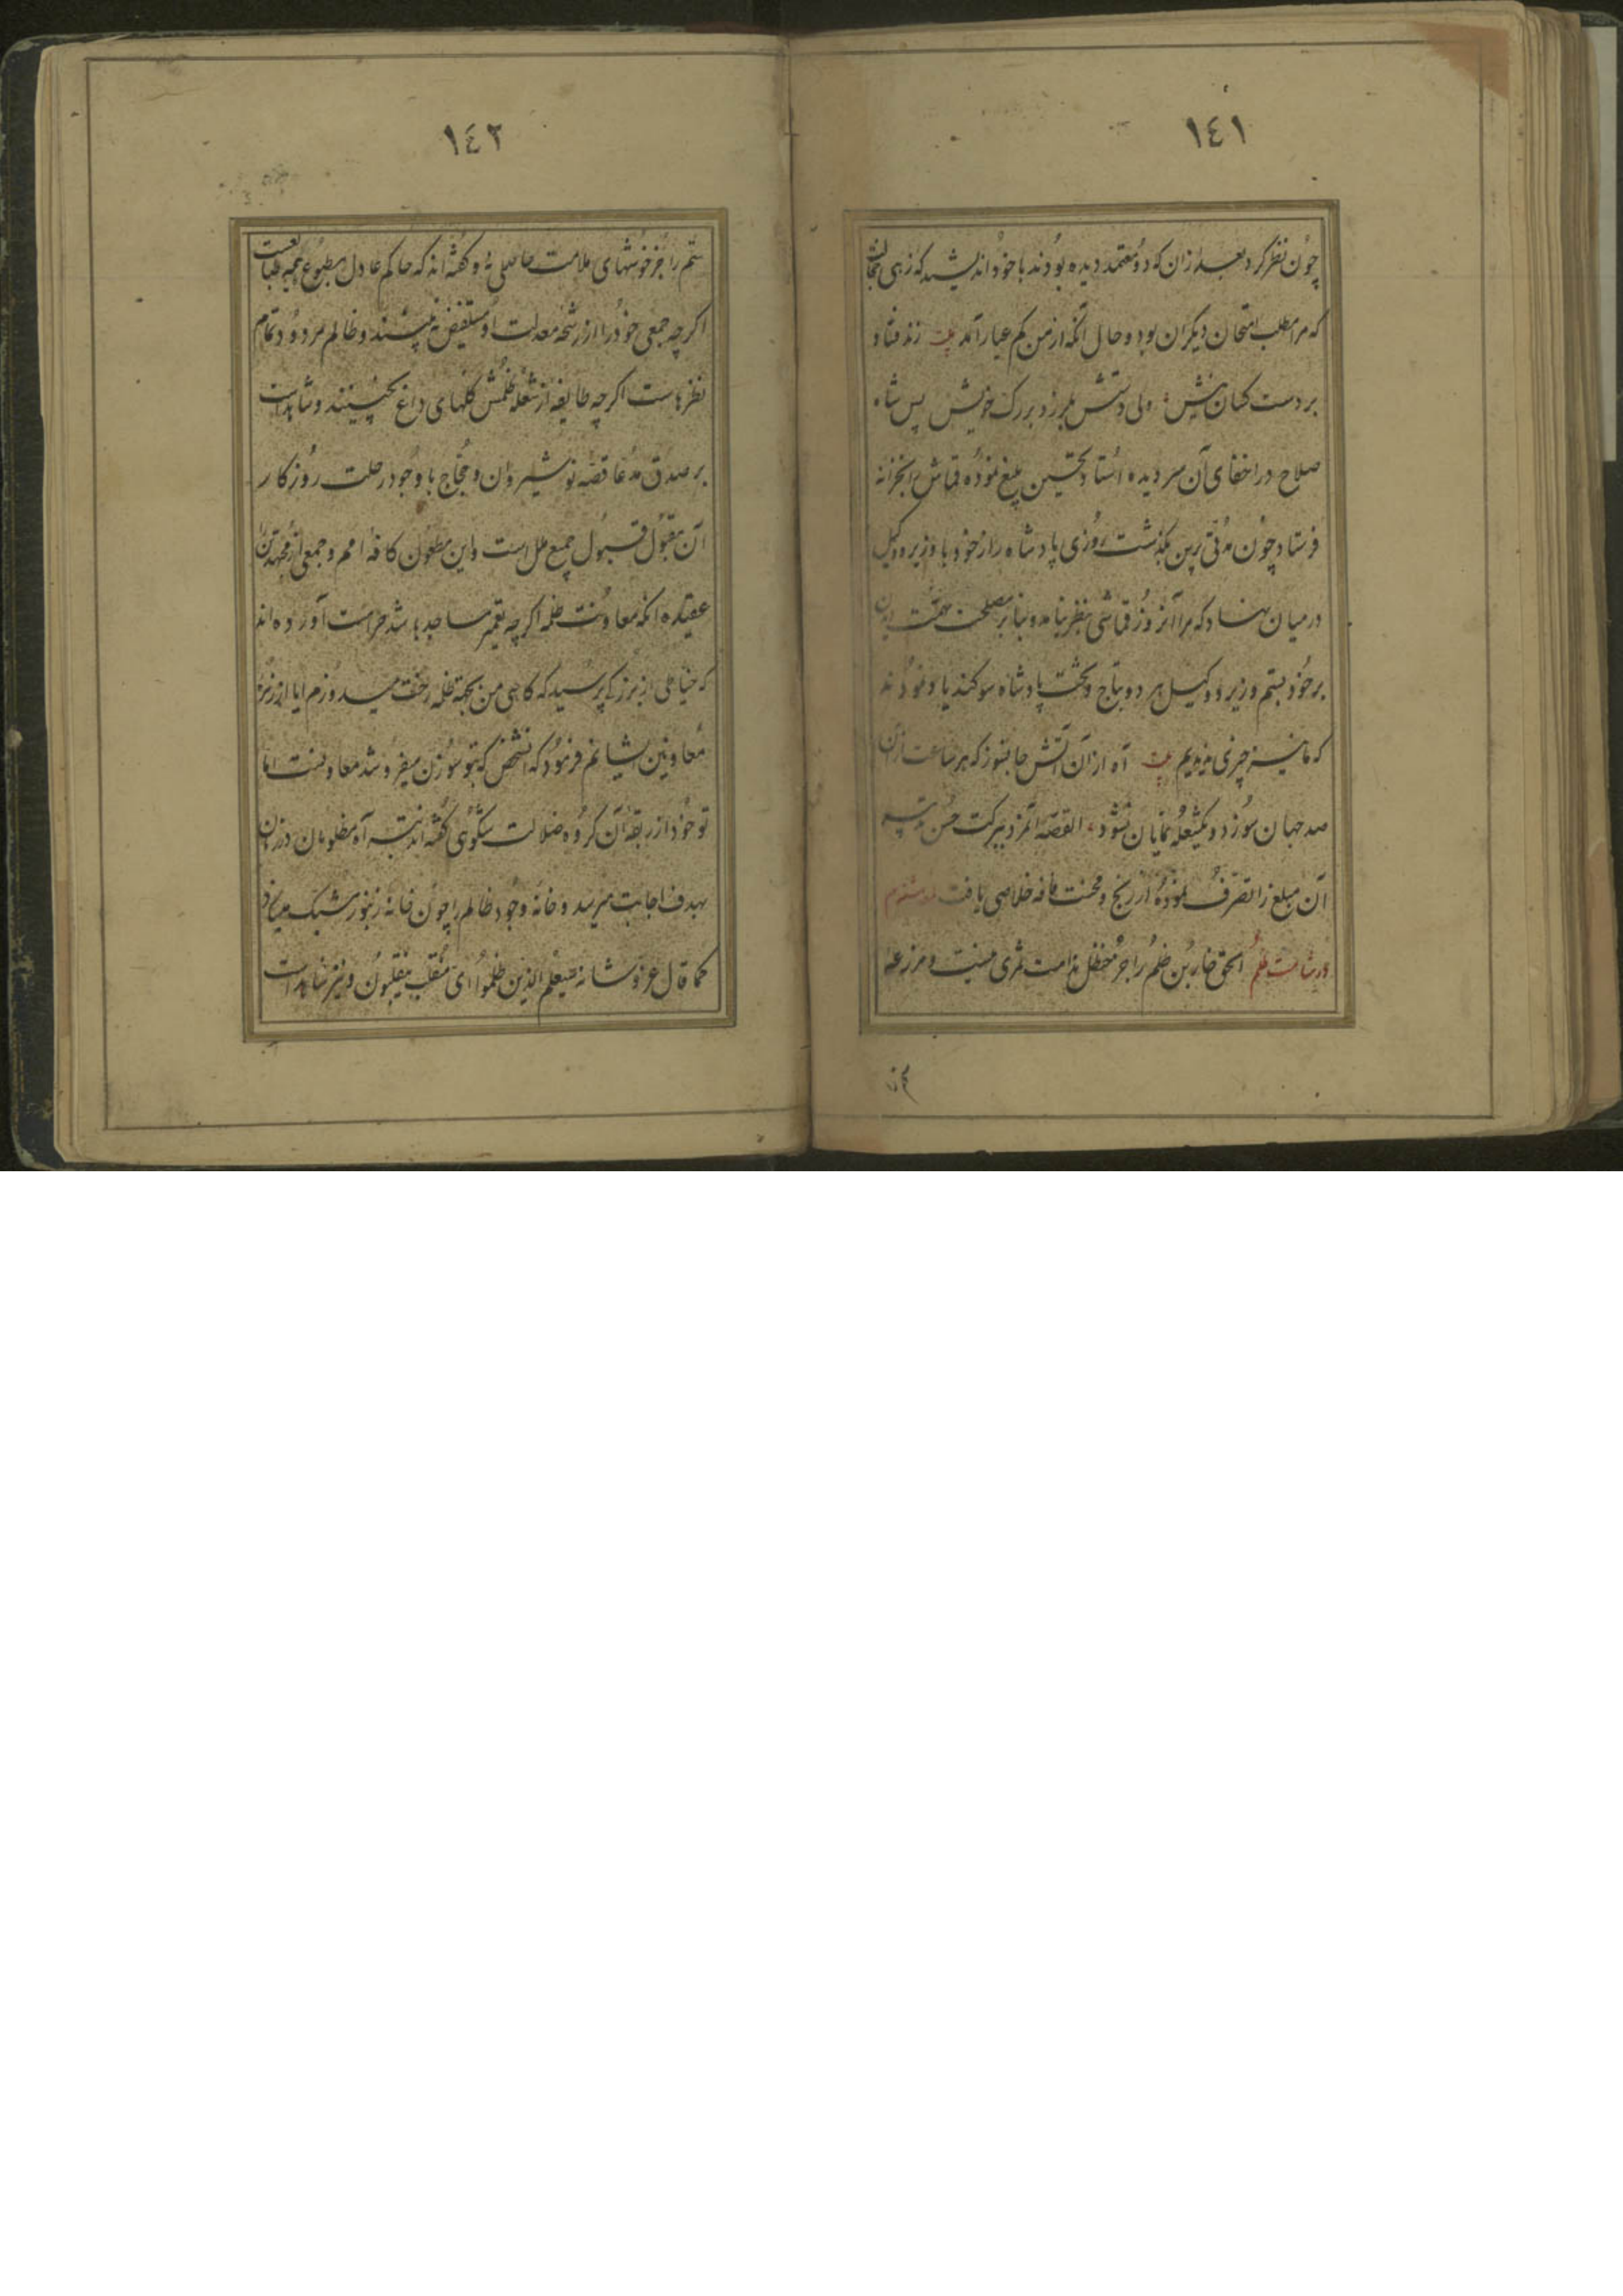 ١٤١
چون نظر کرد بعد از آن که دو معتمد دیده بودند با خود اندیشید که زهی خجالت
که مرا مطلب امتحان دیگران بود و حال آنکه از من کم عیار آمد بیت زند فصاد
بر دست کسان نیش ولی دستش بلرزد بر رگ خویش پس شاه
صلاح در اخفای آن سر دیده استاد تحسین بلیغ نموده قماش بخزانه
فرستاد چون مدتی برین بگذشت روزی پادشاه راز خود با وزیر و وکیل
در میان نهاد که مرا آنروز قماشی بنظر نیامد و بنابر مصلحت تهمت دیدن
بر خود بستم وزیر و وکیل هر دو بتاج و تخت پادشاه سوگند یاد نمودند
که ما نیز چیزی ندیدیم بیت آه از آن آتش جانسوز که هر ساعت از آن
صد جهان سوزد و یکشعله نمایان نشود القصه آنمرد ببرکت حسن تدبیر
آن مبلغ را تصرف نموده از رنج و محنت فاقه خلاصی یافت
در شامت ظلم الحق خاربن ظلم را جز حنظل ندامت ثمری نیست و مزرعه
ستم
١٤٢
ستم را جز خوشهای ملامت حاصلی نه و گفته‌اند که حاکم عادل مطبوع همه طبایعست
اگرچه جمعی خود را از رشحه معدلت او مستفیض نبینند و ظالم مردود تمام
نظرهاست اگرچه طایفه از شعله ظلمش گلهای داغ نچینند و شاهد است
بر صدق مدعا قصه نوشیروان و حجاج با وجود رحلت روزگار
آن مقبول قبول جمیع ملل است و این مطعون کافه امم و جمعی از مجتهدین
عقیده آنکه معاونت ظلمه اگرچه بتعمیر مساجد باشد حرامست آورده‌اند
که خیاطی از بزرگی پرسید که گاهی من بجهة ظلمه رخت میدوزم آیا از زمره
معاونین ایشانم فرمود که آنشخص که بتو سوزن میفروشد معاونست اما
تو خود از ربقه آن گروه ضلالت شکوئی گفته‌اند تیر آه مظلومان در زمان
بهدف اجابت میرسد و خانه وجود ظالم را چون خانه زنبور مشبک میسازد
کما قال عز و شانه سیعلم الذین ظلموا ای منقلب ینقلبون و نیز شاهد است